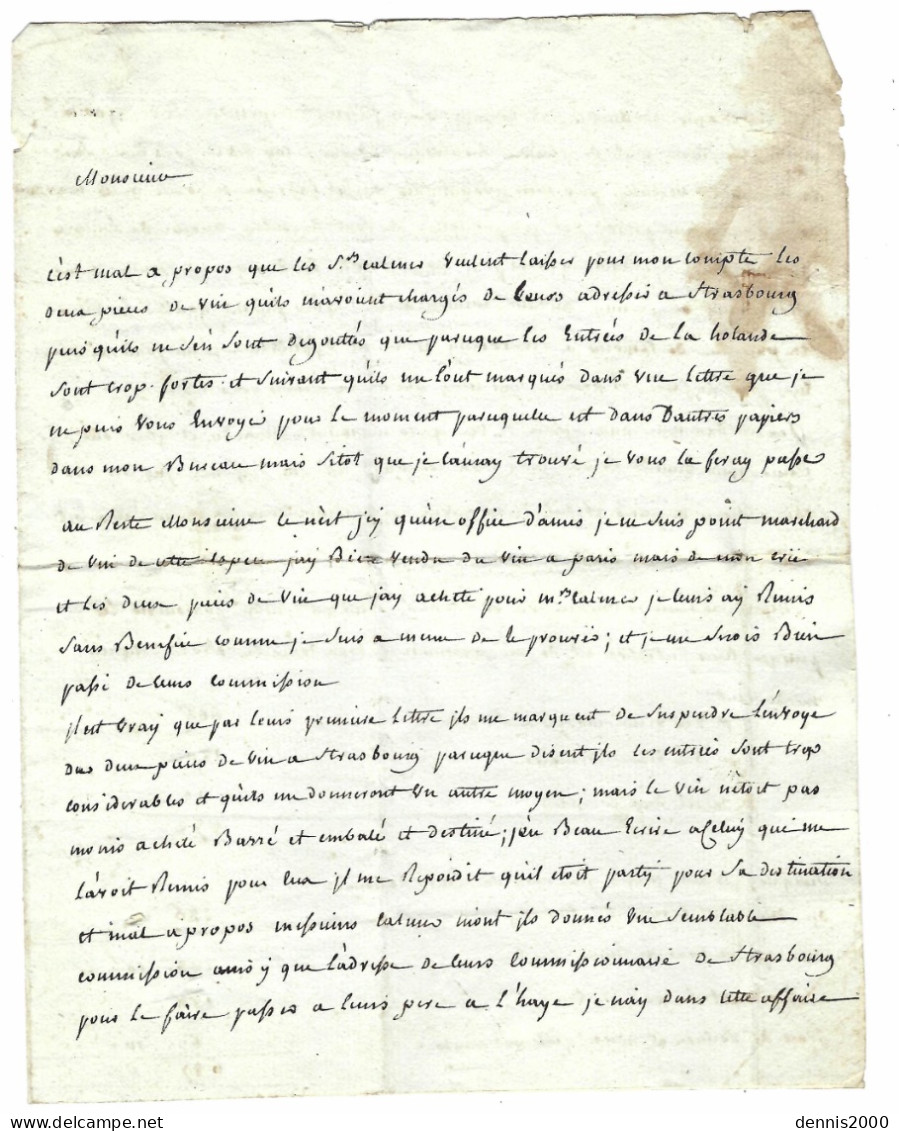 Monsieur
C'est mal a propos que les S.rs calmer veulent laisser pour mon compte les
deux pieces de vin qu'ils m'avoient chargés de leurs adresser a Strasbourg
puis qu'ils ne s'en sont degoutés que parceque les Entrées de la holande
sont trop fortes et suivant qu'ils me l'ont marqués dans une lettre que je
ne puis vous Envoyé pour le moment parcequelle est dans D'autres papiers
dans mon Bureau mais sitot que je l'auray trouvé je vous la feray passer
au Reste Monsieur ce n'est jcy qu'un office d'amis je ne suis point marchand
de vin de cette espece jay Bien vendu du vin a paris mais de mon crû
et les deux pieces de vin que jay acheté pour m.rs calmer je leurs ay Remis
sans Benefice comme je suis a meme de le prouvés; et je me serois Bien
passé de leurs commission
jl est vray que par leurs premiere lettre jls me marquent de suspendre l'envoye
des deux pieces de vin a Strasbourg parceque disent jls les entrées sont trop
considerables et qu'ils me donneront un autre moyen; mais le vin n'etoit pas
moins acheté Barré et embalé et destiné; j'eu Beau Ecrire a celuy qui me
l'avoit Remis pour eux jl me Repondit qu'il etoit party pour sa destination
et mal a propos messieurs calmer m'ont jls donnés une semblable
commission ainsy que l'adresse de leurs Commissionnaire de Strasbourg
pour le faire passer a leurs pere a L'haye je n'ay dans cette affaire
dennis2000